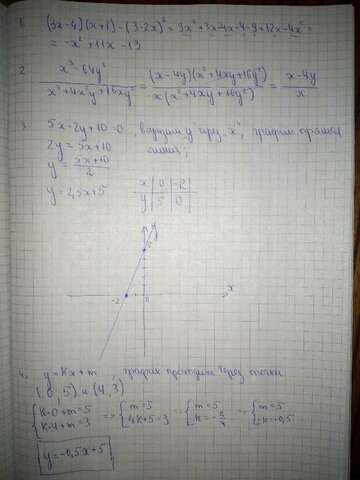 1. (3x-4)(x+1)-(3-2x)² = 3x²+3x-4x-4-9+12x-4x² =
= -x²+11x-13
2. x³-64y³ / x³+4x²y+16xy² = (x-4y)(x²+4xy+16y²) / x(x²+4xy+16y²) = x-4y / x
3. 5x-2y+10=0, график прямая
2y=5x+10 линия;
y = 5x+10 / 2
y=2,5x+5
x 0 -2
y 5 0
y
5
-2 0 x
4. y=kx+m, график проходит через точки
(0,5) и (4,3)
{k·0+m=5 => {m=5 => {m=5 => {m=5
{k·4+m=3 {4k+5=3 {k=-2/4 {k=-0,5
y=-0,5x+5